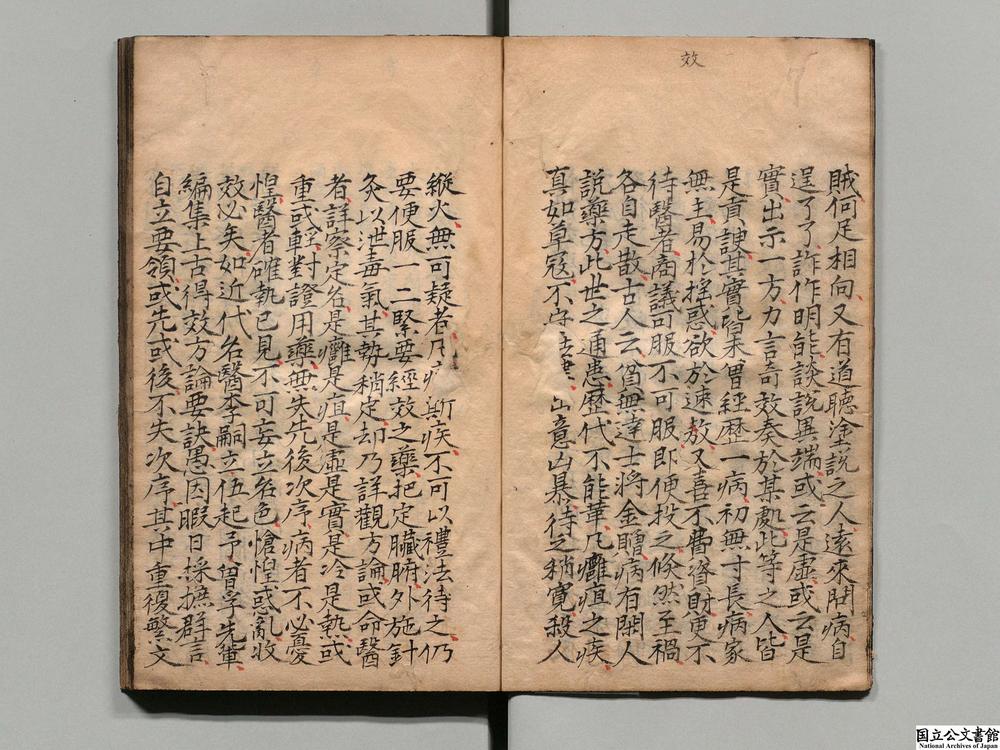 效
賊何足相向又有道聽塗說之人遠來問病自
逞了了詐作明能談說異端或云是虛或云是
實出示一方力言奇效奏於某處此等之人皆
是貢諛其實皆未曾經歷一病初無寸長病家
無主易於搖惑欲於速效又喜不費資財便不
待醫者商議可服不可服即便投之倏然至禍
各自走散古人云為無達士將金贈病有閑人
說藥方此世之通患歷代不能革凡癰疽之疾
真如草寇不守 律出意山暴待之稍寛殺人
縱火無可疑者凡疒斯疾不可以禮法待之仍
要便服一二緊要經效之藥把定臟腑外施針
灸以泄毒氣其勢稍定却乃詳觀方論或命醫
者詳察定名是癰是疽是虛是實是冷是熱或
重或輕對證用藥無失先後次序病者不必憂
惶醫者確執已見不可妄立名色愴惶惑亂收
效必矣如近代名醫李嗣立伍起予曾孚先輩
編集上古得效方論要訣愚因暇日採摭群言
自立要領或先或後不失次序其中重復繁文
国立公文書館
National Archives of Japan